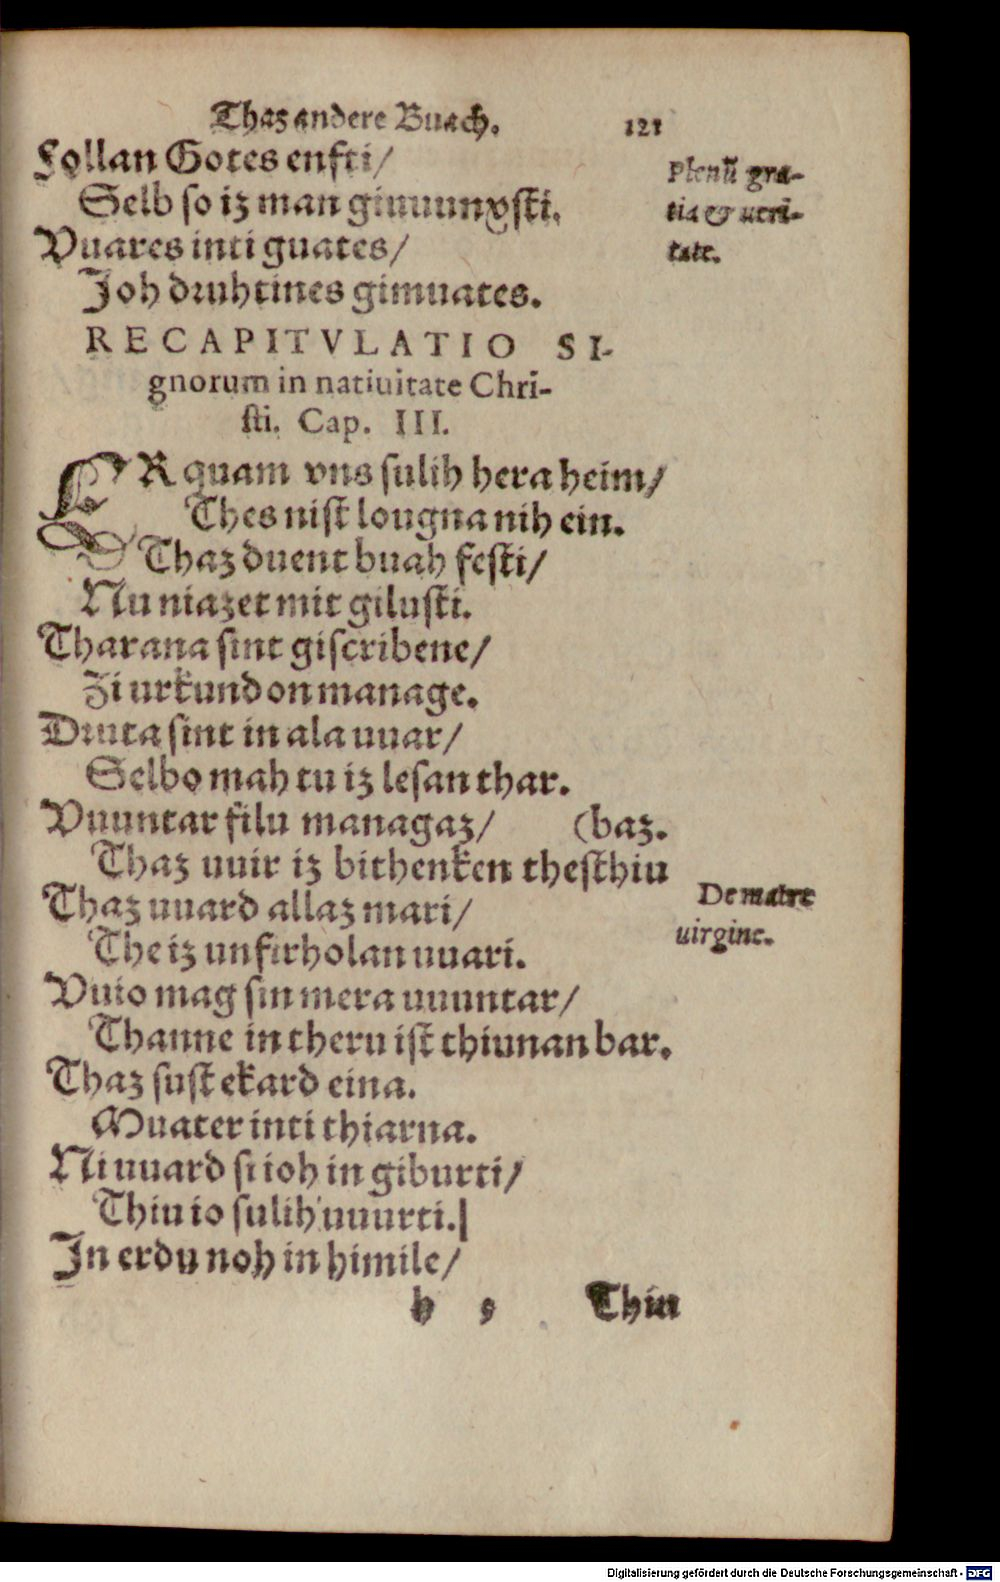 Thaz andere Buach. 121
Follan Gotes ensti/
Plenū gra-
Selb so iz man giuuunxsti.
tia & ueri-
Vuares inti guates/
tate.
Joh druhtines gimuates.
RECAPITVLATIO SI-
gnorum in natiuitate Chri-
sti. Cap. III.
ER quam vns sulih hera heim/
Thes nist lougna nih ein.
Thaz duent buah festi/
Nu niazet mit gilusti.
Tharana sint giscribene/
Zi urkundon manage.
Druta sint in ala uuar/
Selbo mah tu iz lesan thar.
Vuuntar filu managaz/ (baz.
Thaz uuir iz bithenken thesthiu
De matre
Thaz uuard allaz mari/
uirgine.
The iz unfirholan uuari.
Vuio mag sin mera uuuntar/
Thanne in theru ist thiu nan bar.
Thaz sust ekard eina.
Muater inti thiarna.
Ni uuard si ioh in giburti/
Thiu io sulih uuurti.
In erdu noh in himile/
h 5 Thiu
Digitalisierung gefördert durch die Deutsche Forschungsgemeinschaft - DFG